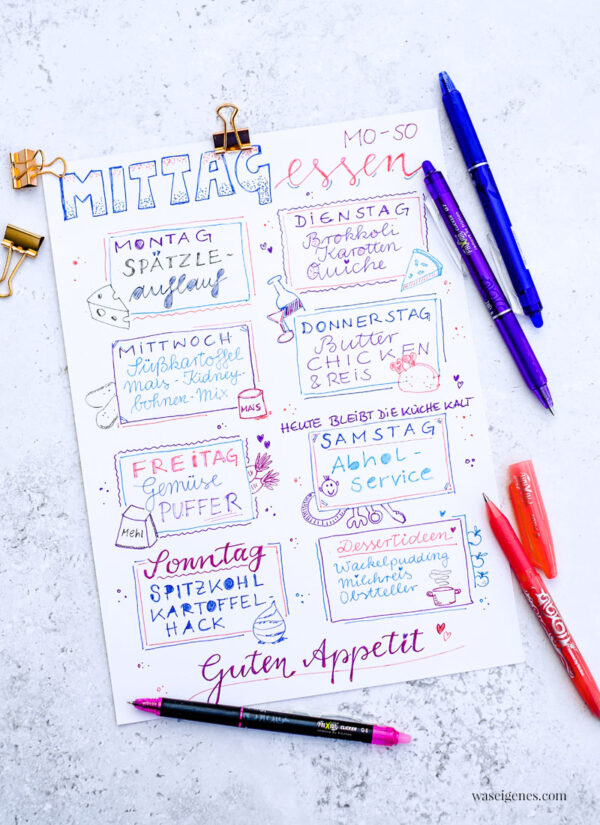 MO-SO
MITTAG essen
MONTAG
SPÄTZLE-
auflauf
DIENSTAG
Brokkoli
Karotten
Quiche
MITTWOCH
Süßkartoffel
Mais-Kidney-
bohnen-Mix
MAIS
DONNERSTAG
Butter
CHICKEN
& REIS
HEUTE BLEIBT DIE KÜCHE KALT
FREITAG
Gemüse
PUFFER
Mehl
SAMSTAG
Abhol-
service
Sonntag
SPITZKOHL
KARTOFFEL-
HACK
Dessertideen
Wackelpudding
Milchreis
Obstteller
Guten Appetit
FriXion CLICKER 0.5
waseigenes.com